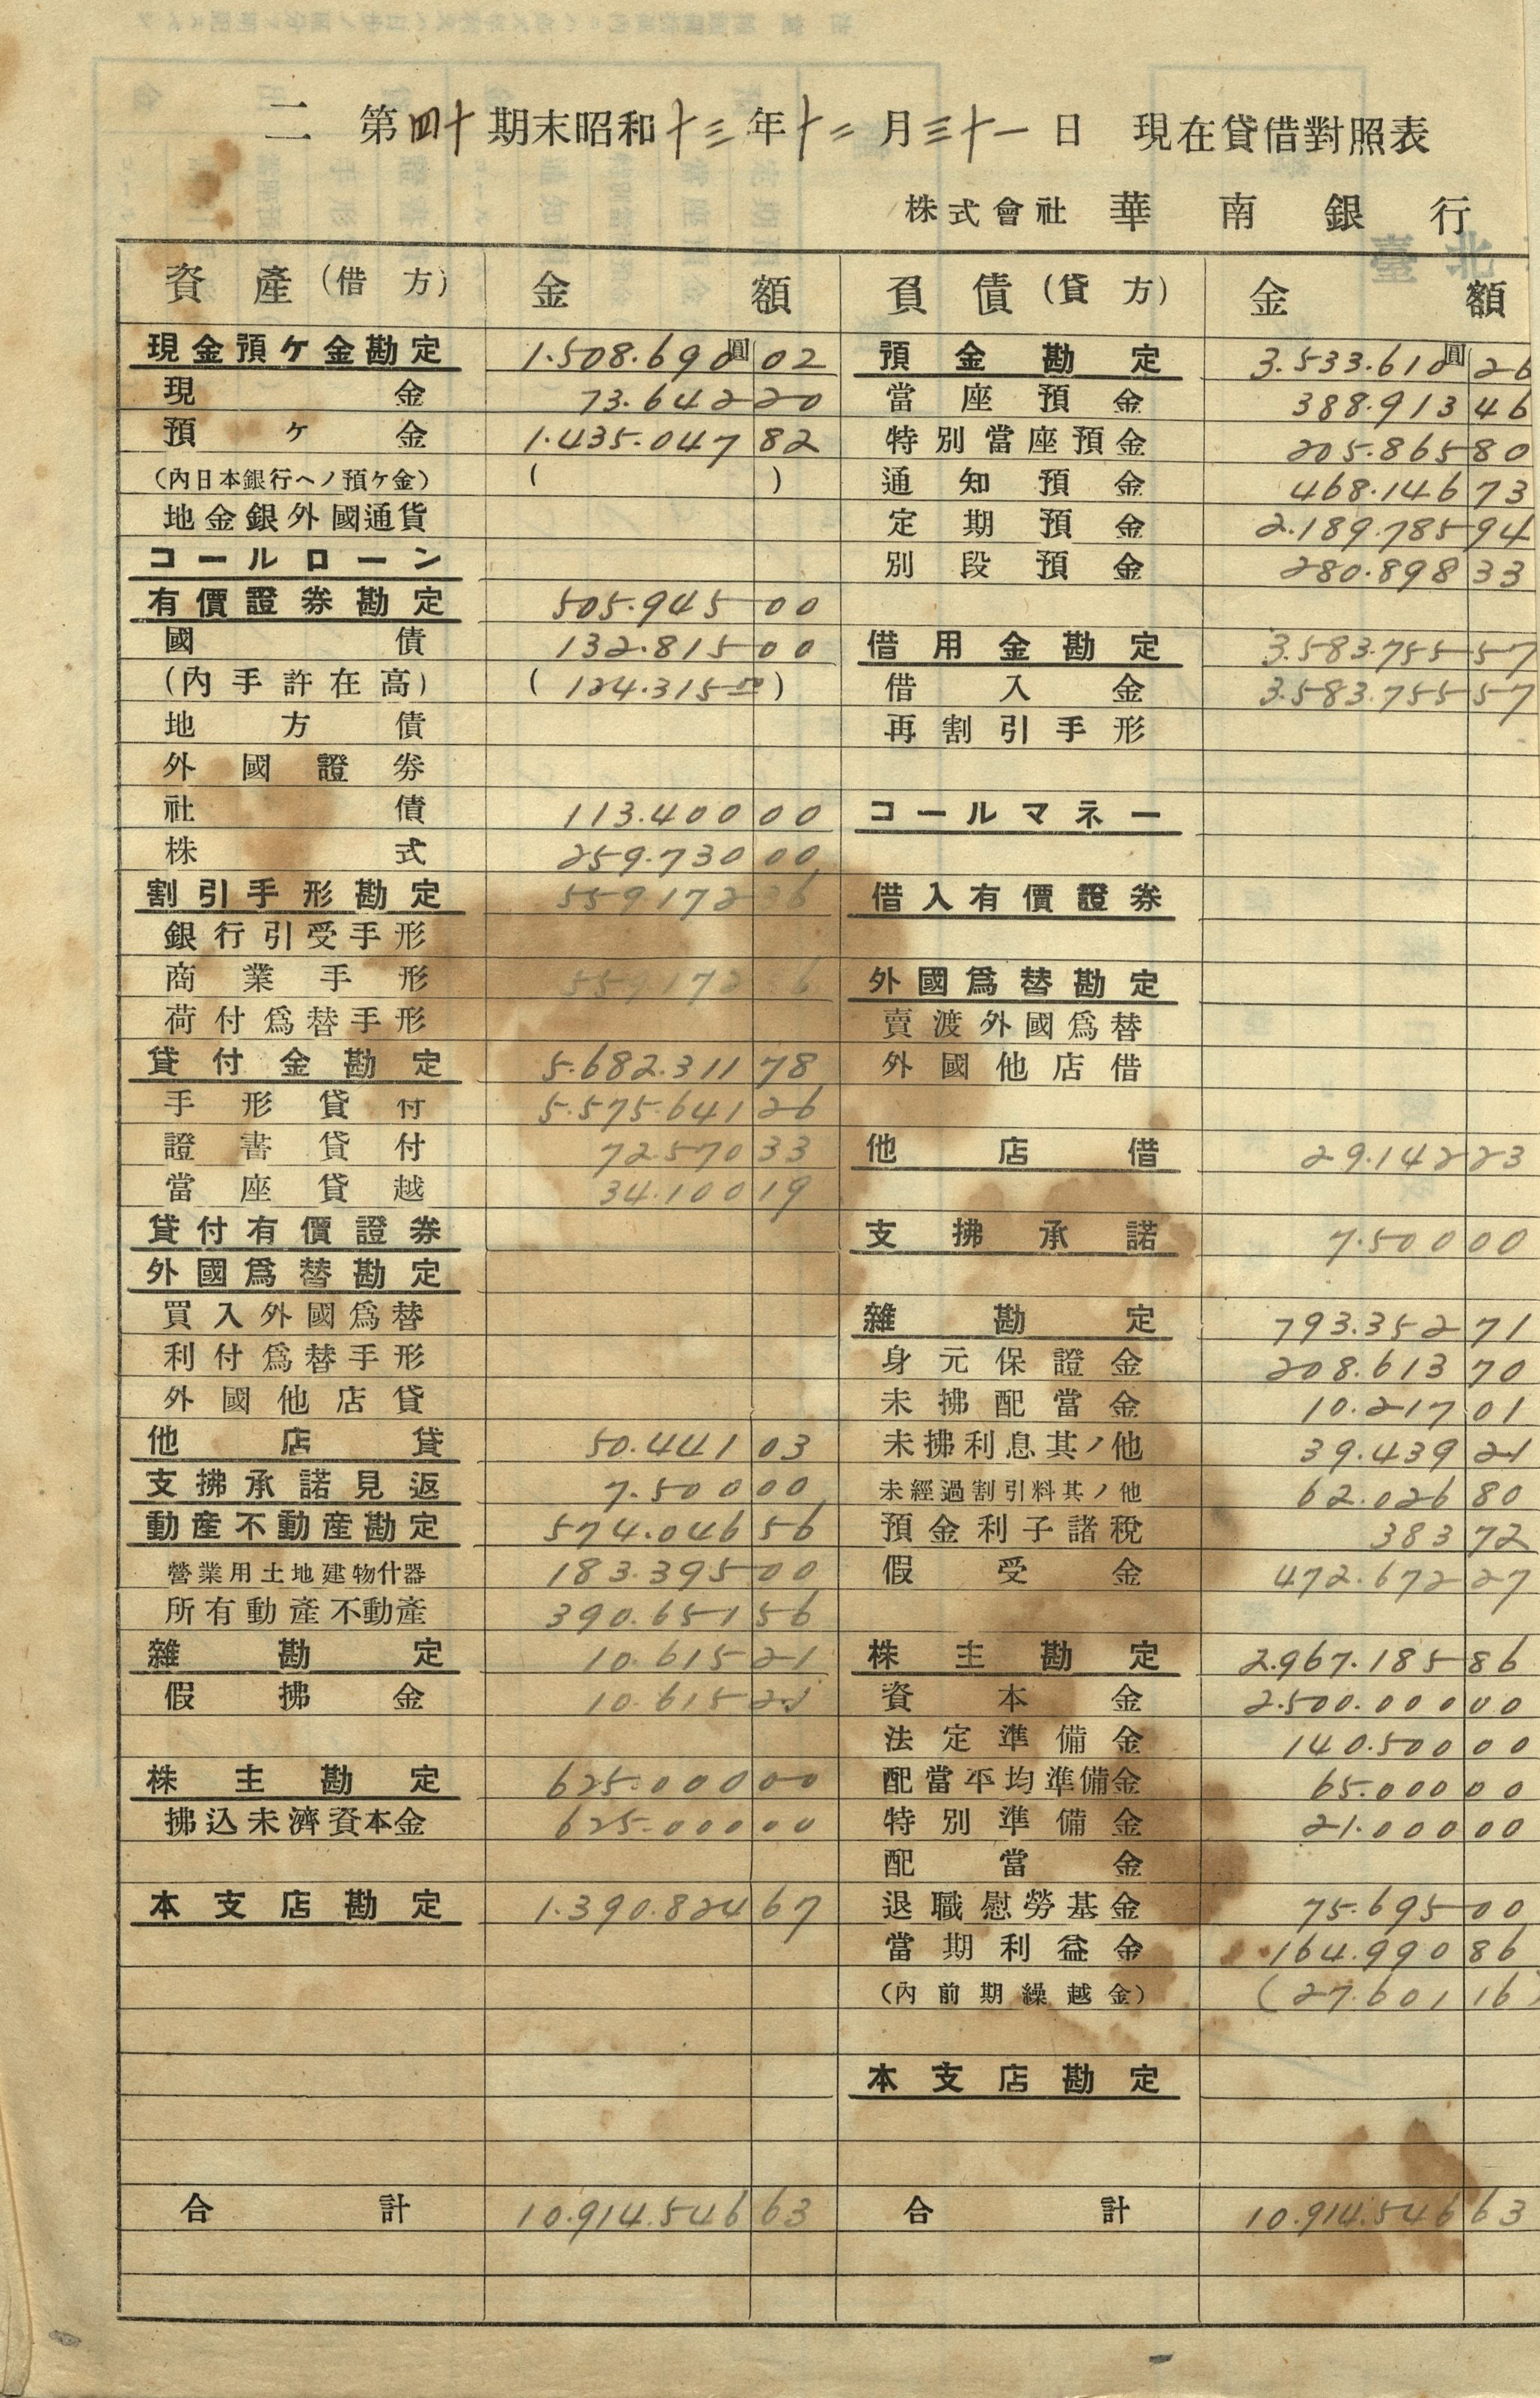 二 第四十期末昭和十三年十二月三十一日 現在貸借對照表
株式會社 華南銀行
資產(借方) 金額 負債(貸方) 金額
現金預ケ金勘定 1.508.690圓02
現金 73.642 20
預ケ金 1.435.047 82
(內日本銀行ヘノ預ケ金) ( )
地金銀外國通貨
コールローン
有價證券勘定 505.945 00
國債 132.815 00
(內手許在高) (124.315 00)
地方債
外國證券
社債 113.400 00
株式 259.730 00
割引手形勘定 559.172 36
銀行引受手形
商業手形 559.172 6
荷付爲替手形
貸付金勘定 5.682.311 78
手形貸付 5.575.641 26
證書貸付 72.570 33
當座貸越 34.100 19
貸付有價證券
外國爲替勘定
買入外國爲替
利付爲替手形
外國他店貸
他店貸 50.441 03
支拂承諾見返 7.500 00
動產不動產勘定 574.046 56
營業用土地建物什器 183.395 00
所有動產不動產 390.651 56
雜勘定 10.615 21
假拂金 10.615 21
株主勘定 625.000 00
拂込未濟資本金 625.000 00
本支店勘定 1.390.824 67
合計 10.914.546 63
預金勘定 3.533.610圓26
當座預金 388.913 46
特別當座預金 205.865 80
通知預金 468.146 73
定期預金 2.189.785 94
別段預金 280.898 33
借用金勘定 3.583.755 57
借入金 3.583.755 57
再割引手形
コールマネー
借入有價證券
外國爲替勘定
賣渡外國爲替
外國他店借
他店借 29.142 23
支拂承諾 7.500 00
雜勘定 793.352 71
身元保證金 208.613 70
未拂配當金 10.217 01
未拂利息其ノ他 39.439 21
未經過割引料其ノ他 62.026 80
預金利子諸稅 383 72
假受金 472.672 27
株主勘定 2.967.185 86
資本金 2.500.000 00
法定準備金 140.500 00
配當平均準備金 65.000 00
特別準備金 21.000 00
配當金
退職慰勞基金 75.695 00
當期利益金 164.990 86
(內前期繰越金) (27.601 16)
本支店勘定
合計 10.914.546 63